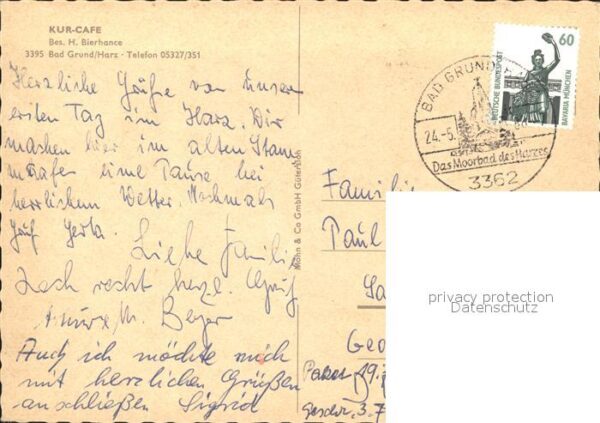 KUR-CAFE
Bes. H. Bierhance
3395 Bad Grund/Harz - Telefon 05327/351
Herzliche Grüße von unserem
ersten Tag im Harz. Wir
machen hier im alten Stamm
eine Pause bei
herrlichem Wetter. Nochmals
Gruß Gerta. Liebe Familie
recht herzl. Gruß
Auch ich möchte mich
mit herzlichen Grüßen
anschließen Sigrid
Mohn & Co GmbH Gütersloh
60
DEUTSCHE BUNDESPOST
BAVARIA MÜNCHEN
BAD GRUND
24.-5.
Das Moorbad des Harzes
3362
Familie
Paul
privacy protection
Datenschutz